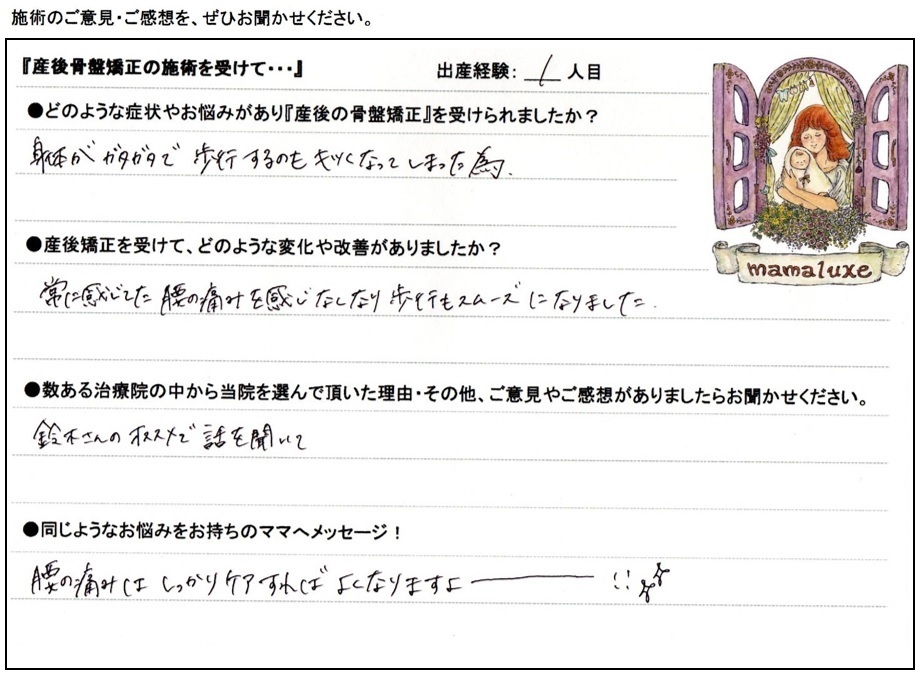 施術のご意見・ご感想を、ぜひお聞かせください。
『産後骨盤矯正の施術を受けて・・・』 出産経験： 1 人目
●どのような症状やお悩みがあり『産後の骨盤矯正』を受けられましたか？
身体が ガタガタで 歩行するのも キツくなってしまった為、
●産後矯正を受けて、どのような変化や改善がありましたか？
常に感じてた 腰の痛みを感じなくなり 歩行もスムーズになりました。
mamaluxe
●数ある治療院の中から当院を選んで頂いた理由・その他、ご意見やご感想がありましたらお聞かせください。
鈴木さんの オススメで 話を聞いて
●同じようなお悩みをお持ちのママへメッセージ！
腰の痛みは しっかりケアすれば よくなりますよ────!!